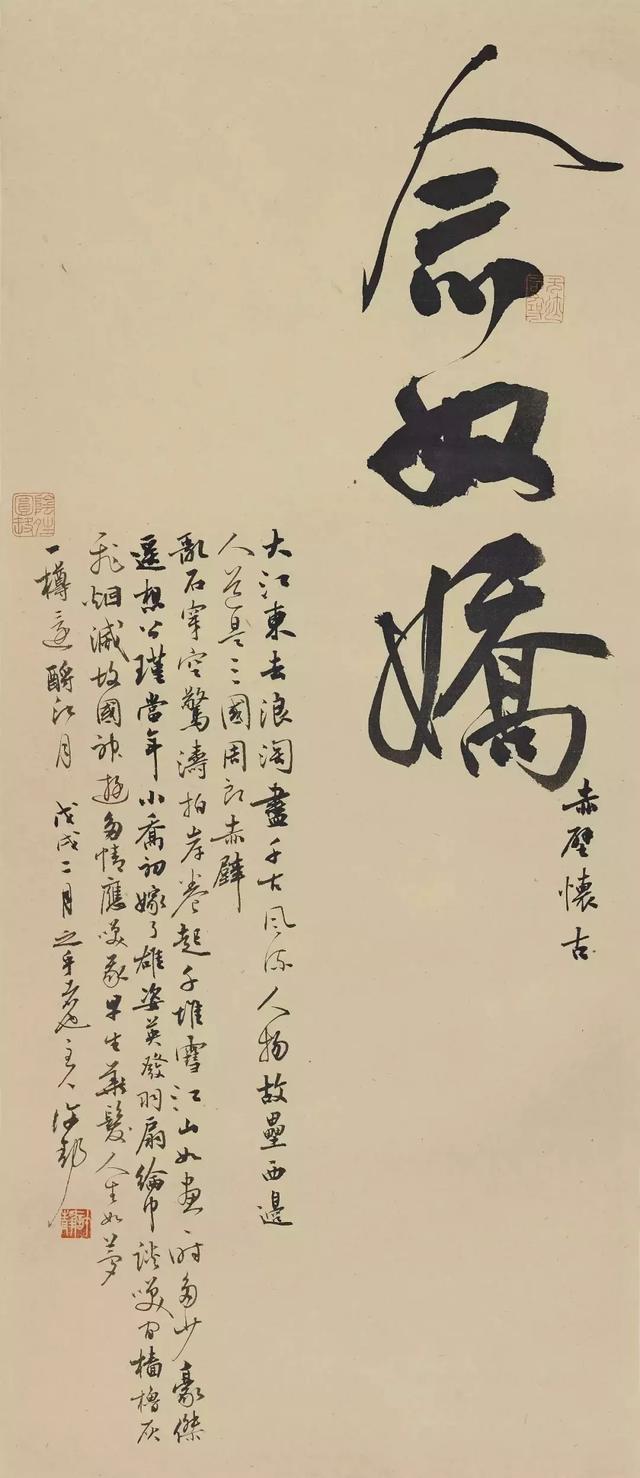 念奴嬌
赤壁懷古
大江東去浪淘盡千古風流人物故壘西邊
人道是三國周郎赤壁
亂石穿空驚濤拍岸卷起千堆雪江山如畫一時多少豪傑
遙想公瑾當年小喬初嫁了雄姿英發羽扇綸巾談笑間檣櫓灰
飛烟滅故國神遊多情應笑我早生華髮人生如夢
一樽還酹江月 戊戌二月之乎者也主人許靜